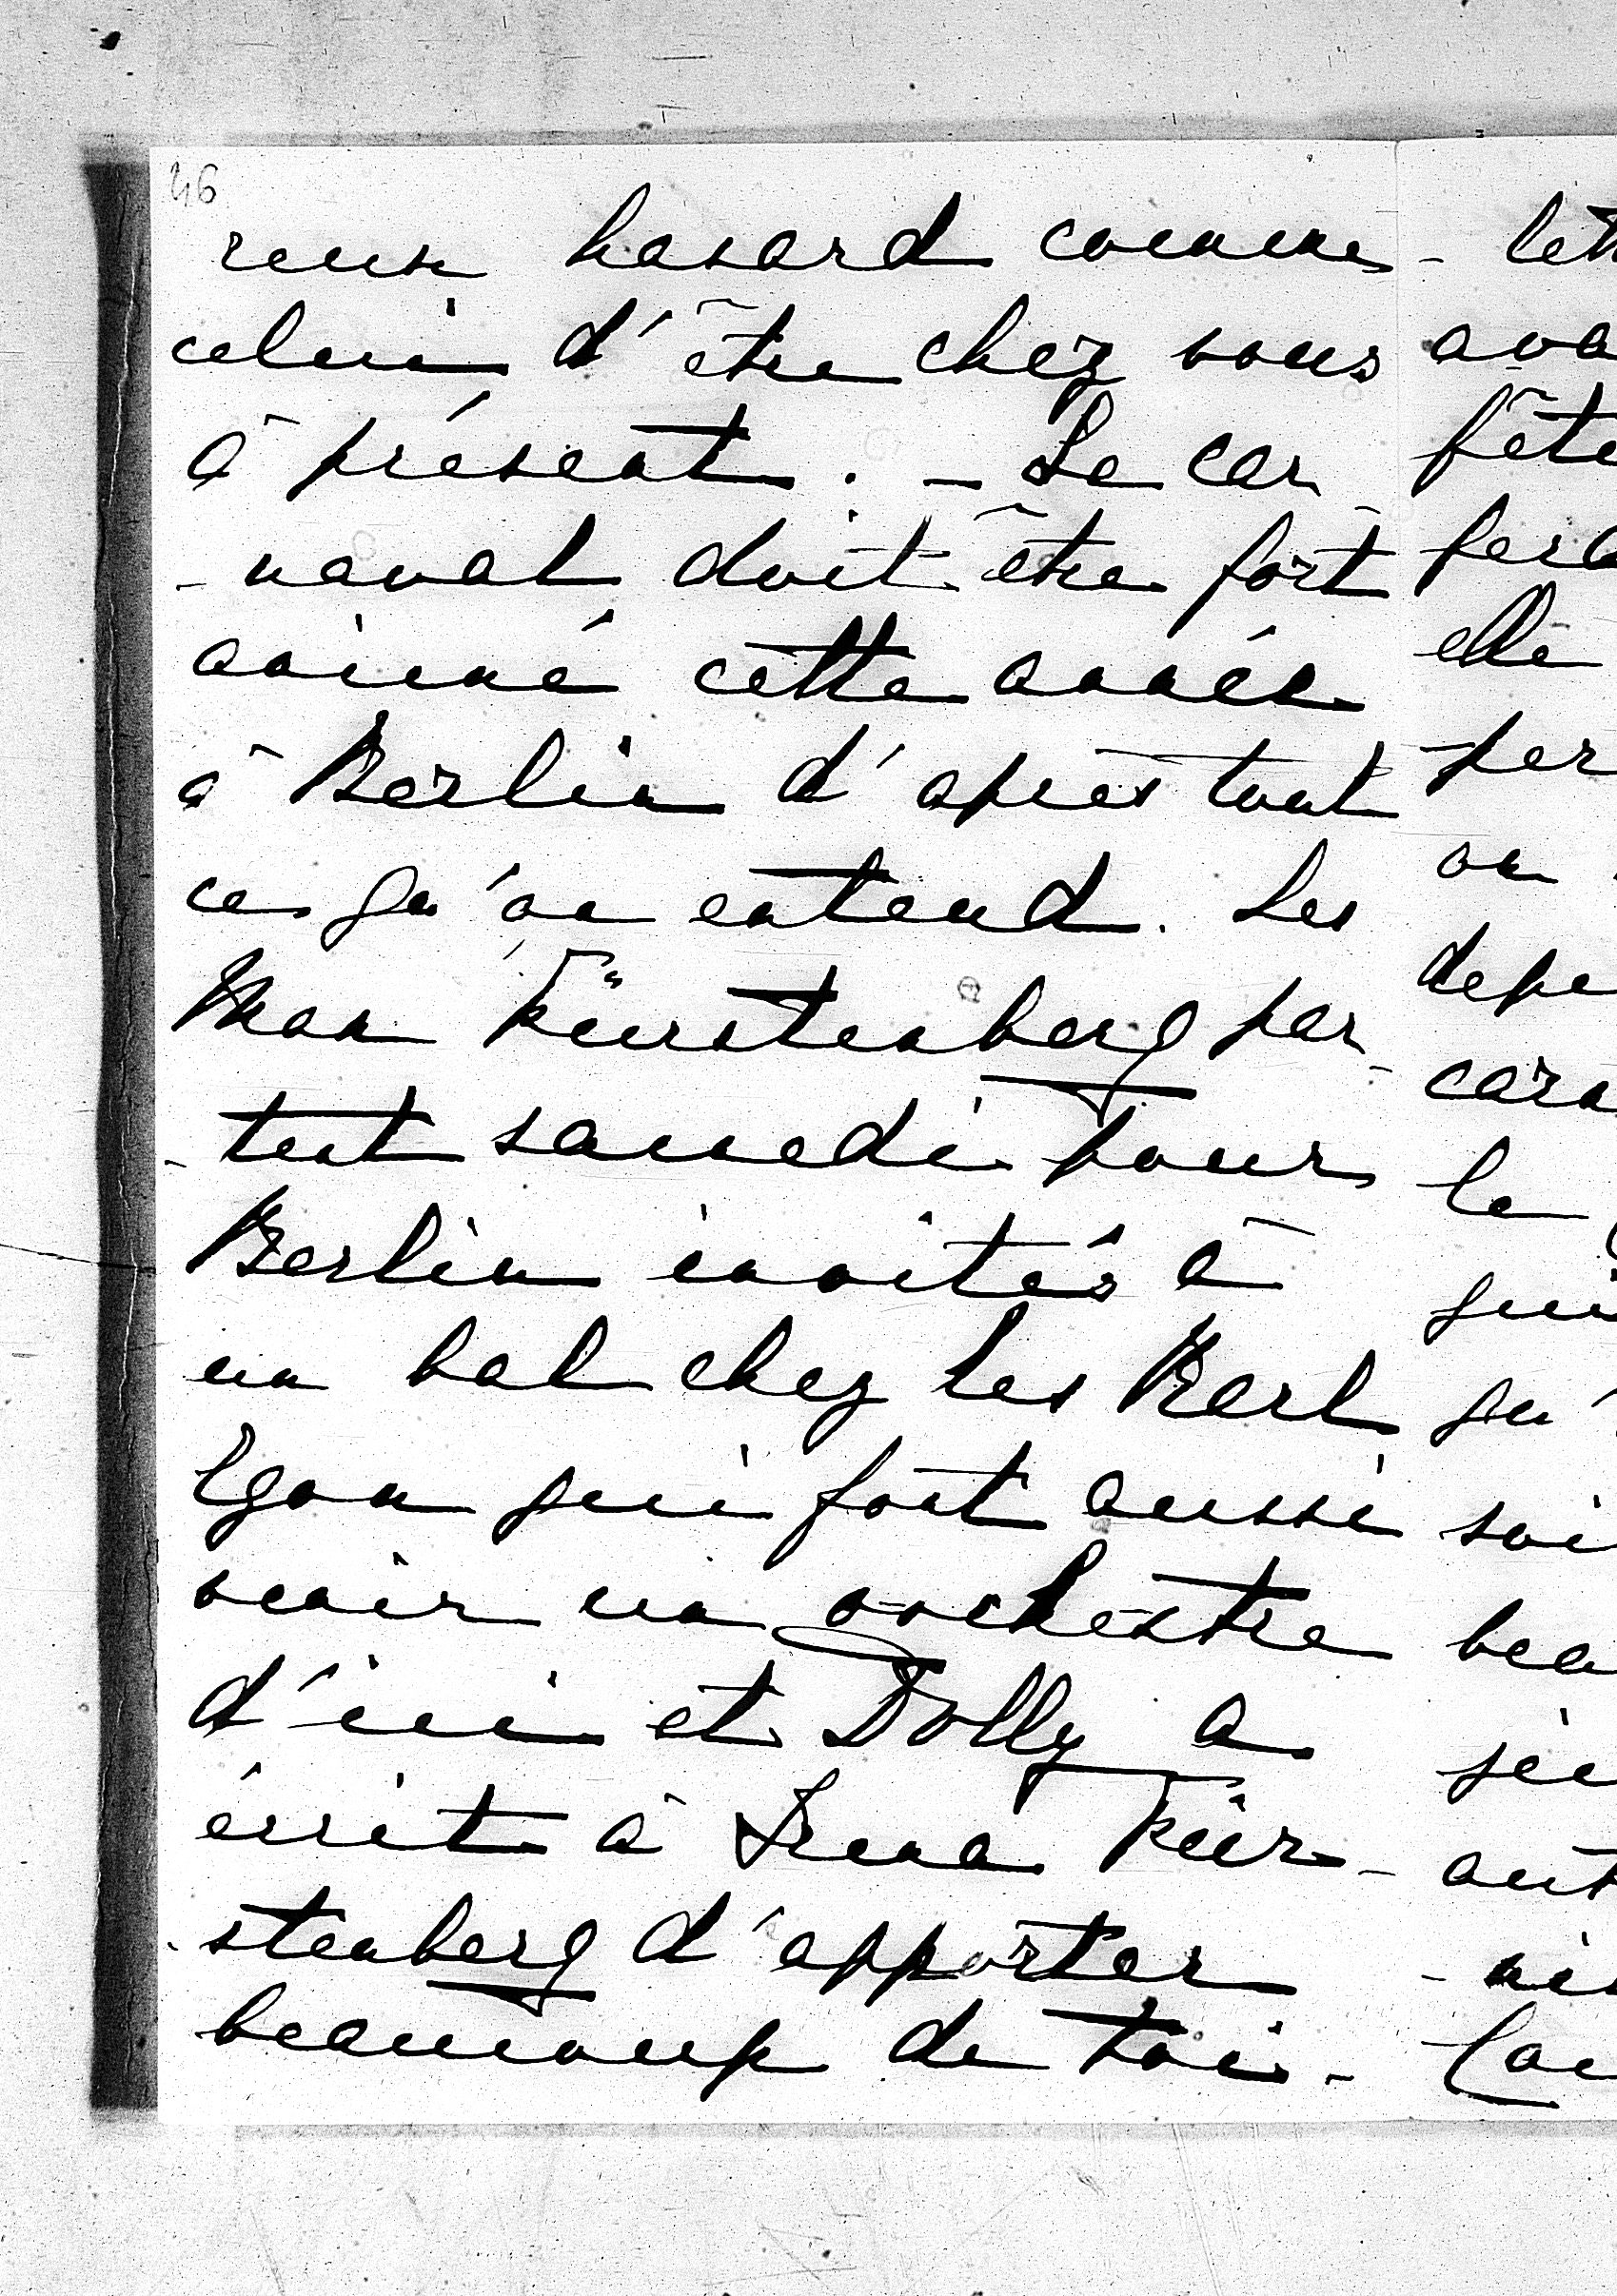 46
reux hasard comme
celui d'être chez vous
à présent. - Le car
- naval doit être fort
animé cette année
à Berlin d'après tout
ce qu'on entend. Les
Max Fürstenberg par-
- tent samedi pour
Berlin invités à
un bal chez les Karl
Egon qui font aussi
venir un orchestre
d'ici et Dolly a
écrit à Irena Für-
- stenberg d'apporter
beaucoup de toi-
- lett
ava
fête
elle
per
on
depe
cara
le
qui
qu'
soi
bea